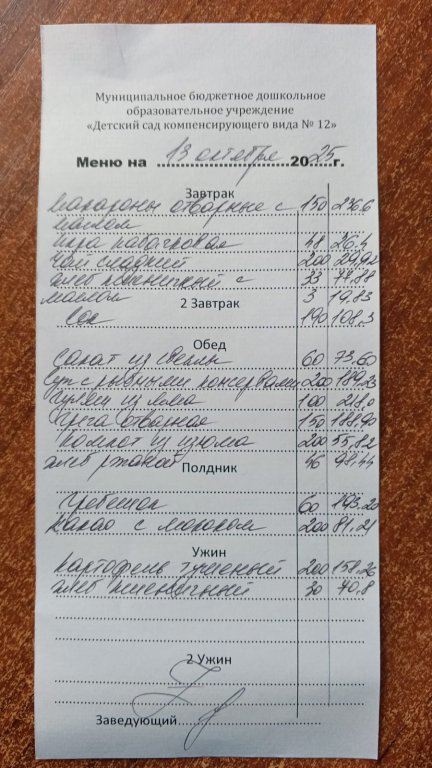 Муниципальное бюджетное дошкольное
образовательное учреждение
«Детский сад компенсирующего вида № 12»
Меню на 13 октября 2025 г.
Завтрак
Макароны отварные с 150 236,6
маслом
Икра кабачковая 48 26,4
Чай сладкий 200 29,92
Хлеб пшеничный с 33 77,88
маслом 3 19,83
2 Завтрак
Сок 190 108,3
Обед
Салат из свеклы 60 73,60
Суп с рыбными консервами 200 189,23
Гуляш из мяса 100 218,0
Греча отварная 150 188,90
Компот из изюма 200 55,82
Хлеб ржаной 46 98,44
Полдник
Гребешок 60 193,20
Какао с молоком 200 81,21
Ужин
Картофель тушеный 200 158,26
Хлеб пшеничный 30 70,8
2 Ужин
Заведующий